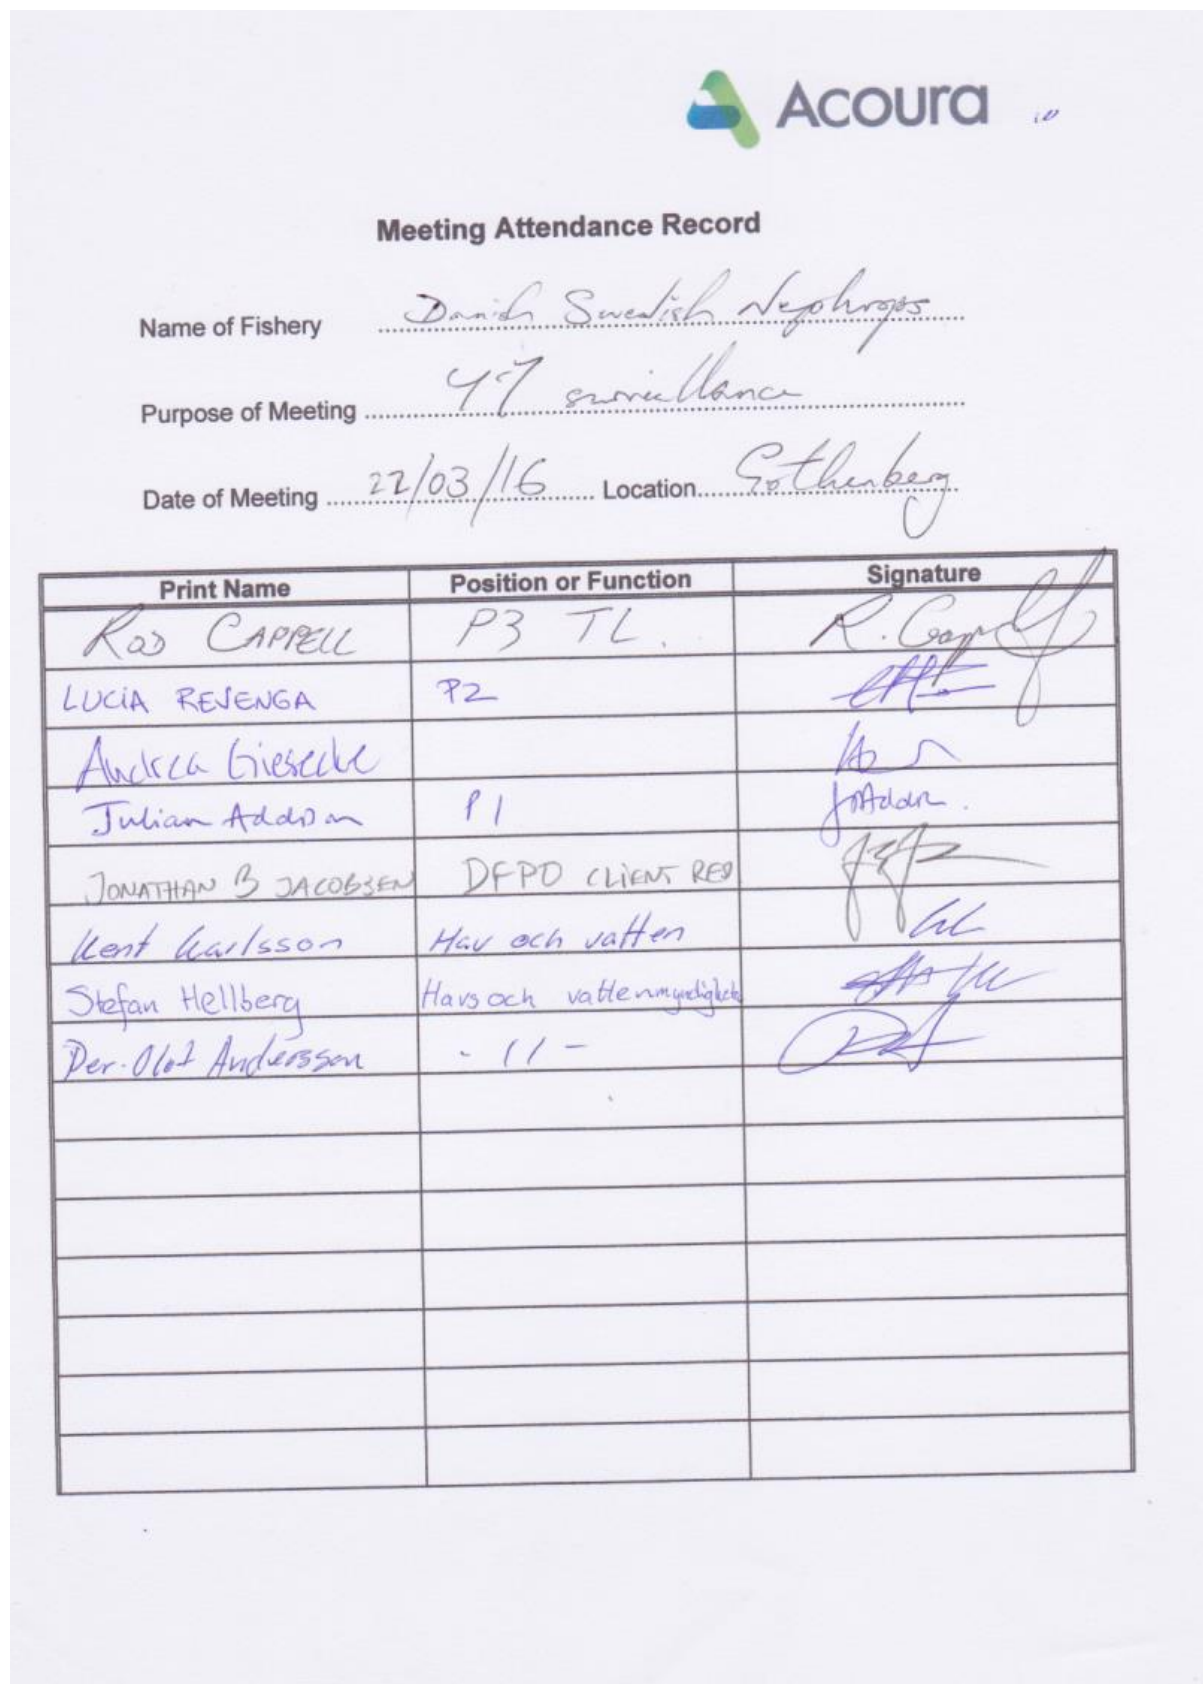 Acoura
Meeting Attendance Record
Name of Fishery Danish Swedish Nephrops
Purpose of Meeting surveillance
Date of Meeting 22/03/16 Location Gothenberg
Print Name Position or Function Signature
ROD CAPPELL P3 TL. R. Cappell
LUCIA REVENGA P2
Andrea Giesecke
Julian Addison P1
JONATHAN B JACOBSEN DFPO CLIENT REP
Kent Karlsson Hav och vatten
Stefan Hellberg Havs och vattenmyndigheten
Per-Olof Andersson - 11 -